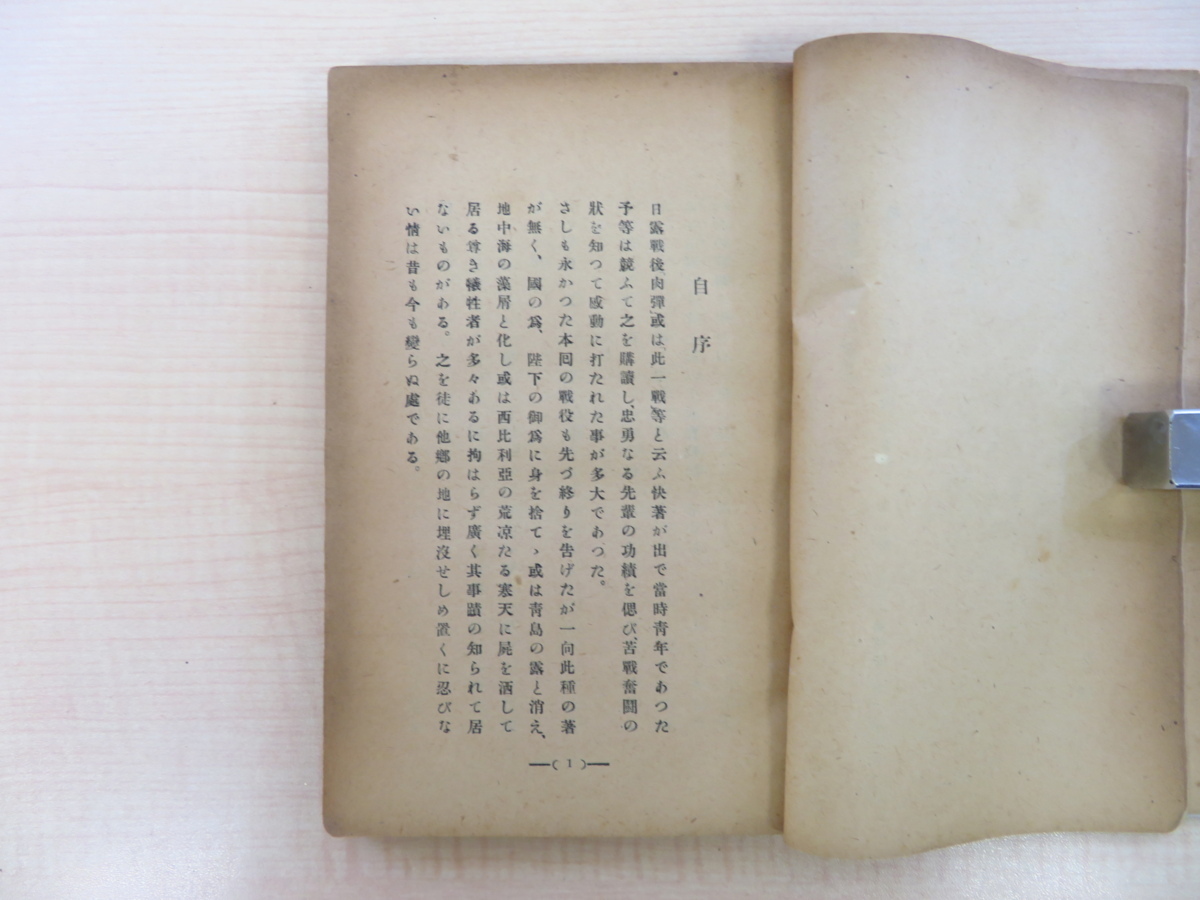 自序
日露戰後「肉彈」或は「此一戰」等と云ふ快著が出で當時靑年であつた
予等は競ふて之を購讀し、忠勇なる先輩の功績を偲び、苦戰奮鬪の
狀を知つて感動に打たれた事が多大であつた。
さしも永かつた本回の戰役も先づ終りを告げたが一向此種の著
が無く、國の爲、陛下の御爲に身を捨てゝ或は靑島の露と消え、
地中海の藻屑と化し或は西比利亞の荒凉たる寒天に屍を洒して
居る尊き犧牲者が多々あるに拘はらず廣く其事蹟の知られて居
ないものがある。之を徒に他鄕の地に埋沒せしめ置くに忍びな
い情は昔も今も變らぬ處である。
(1)